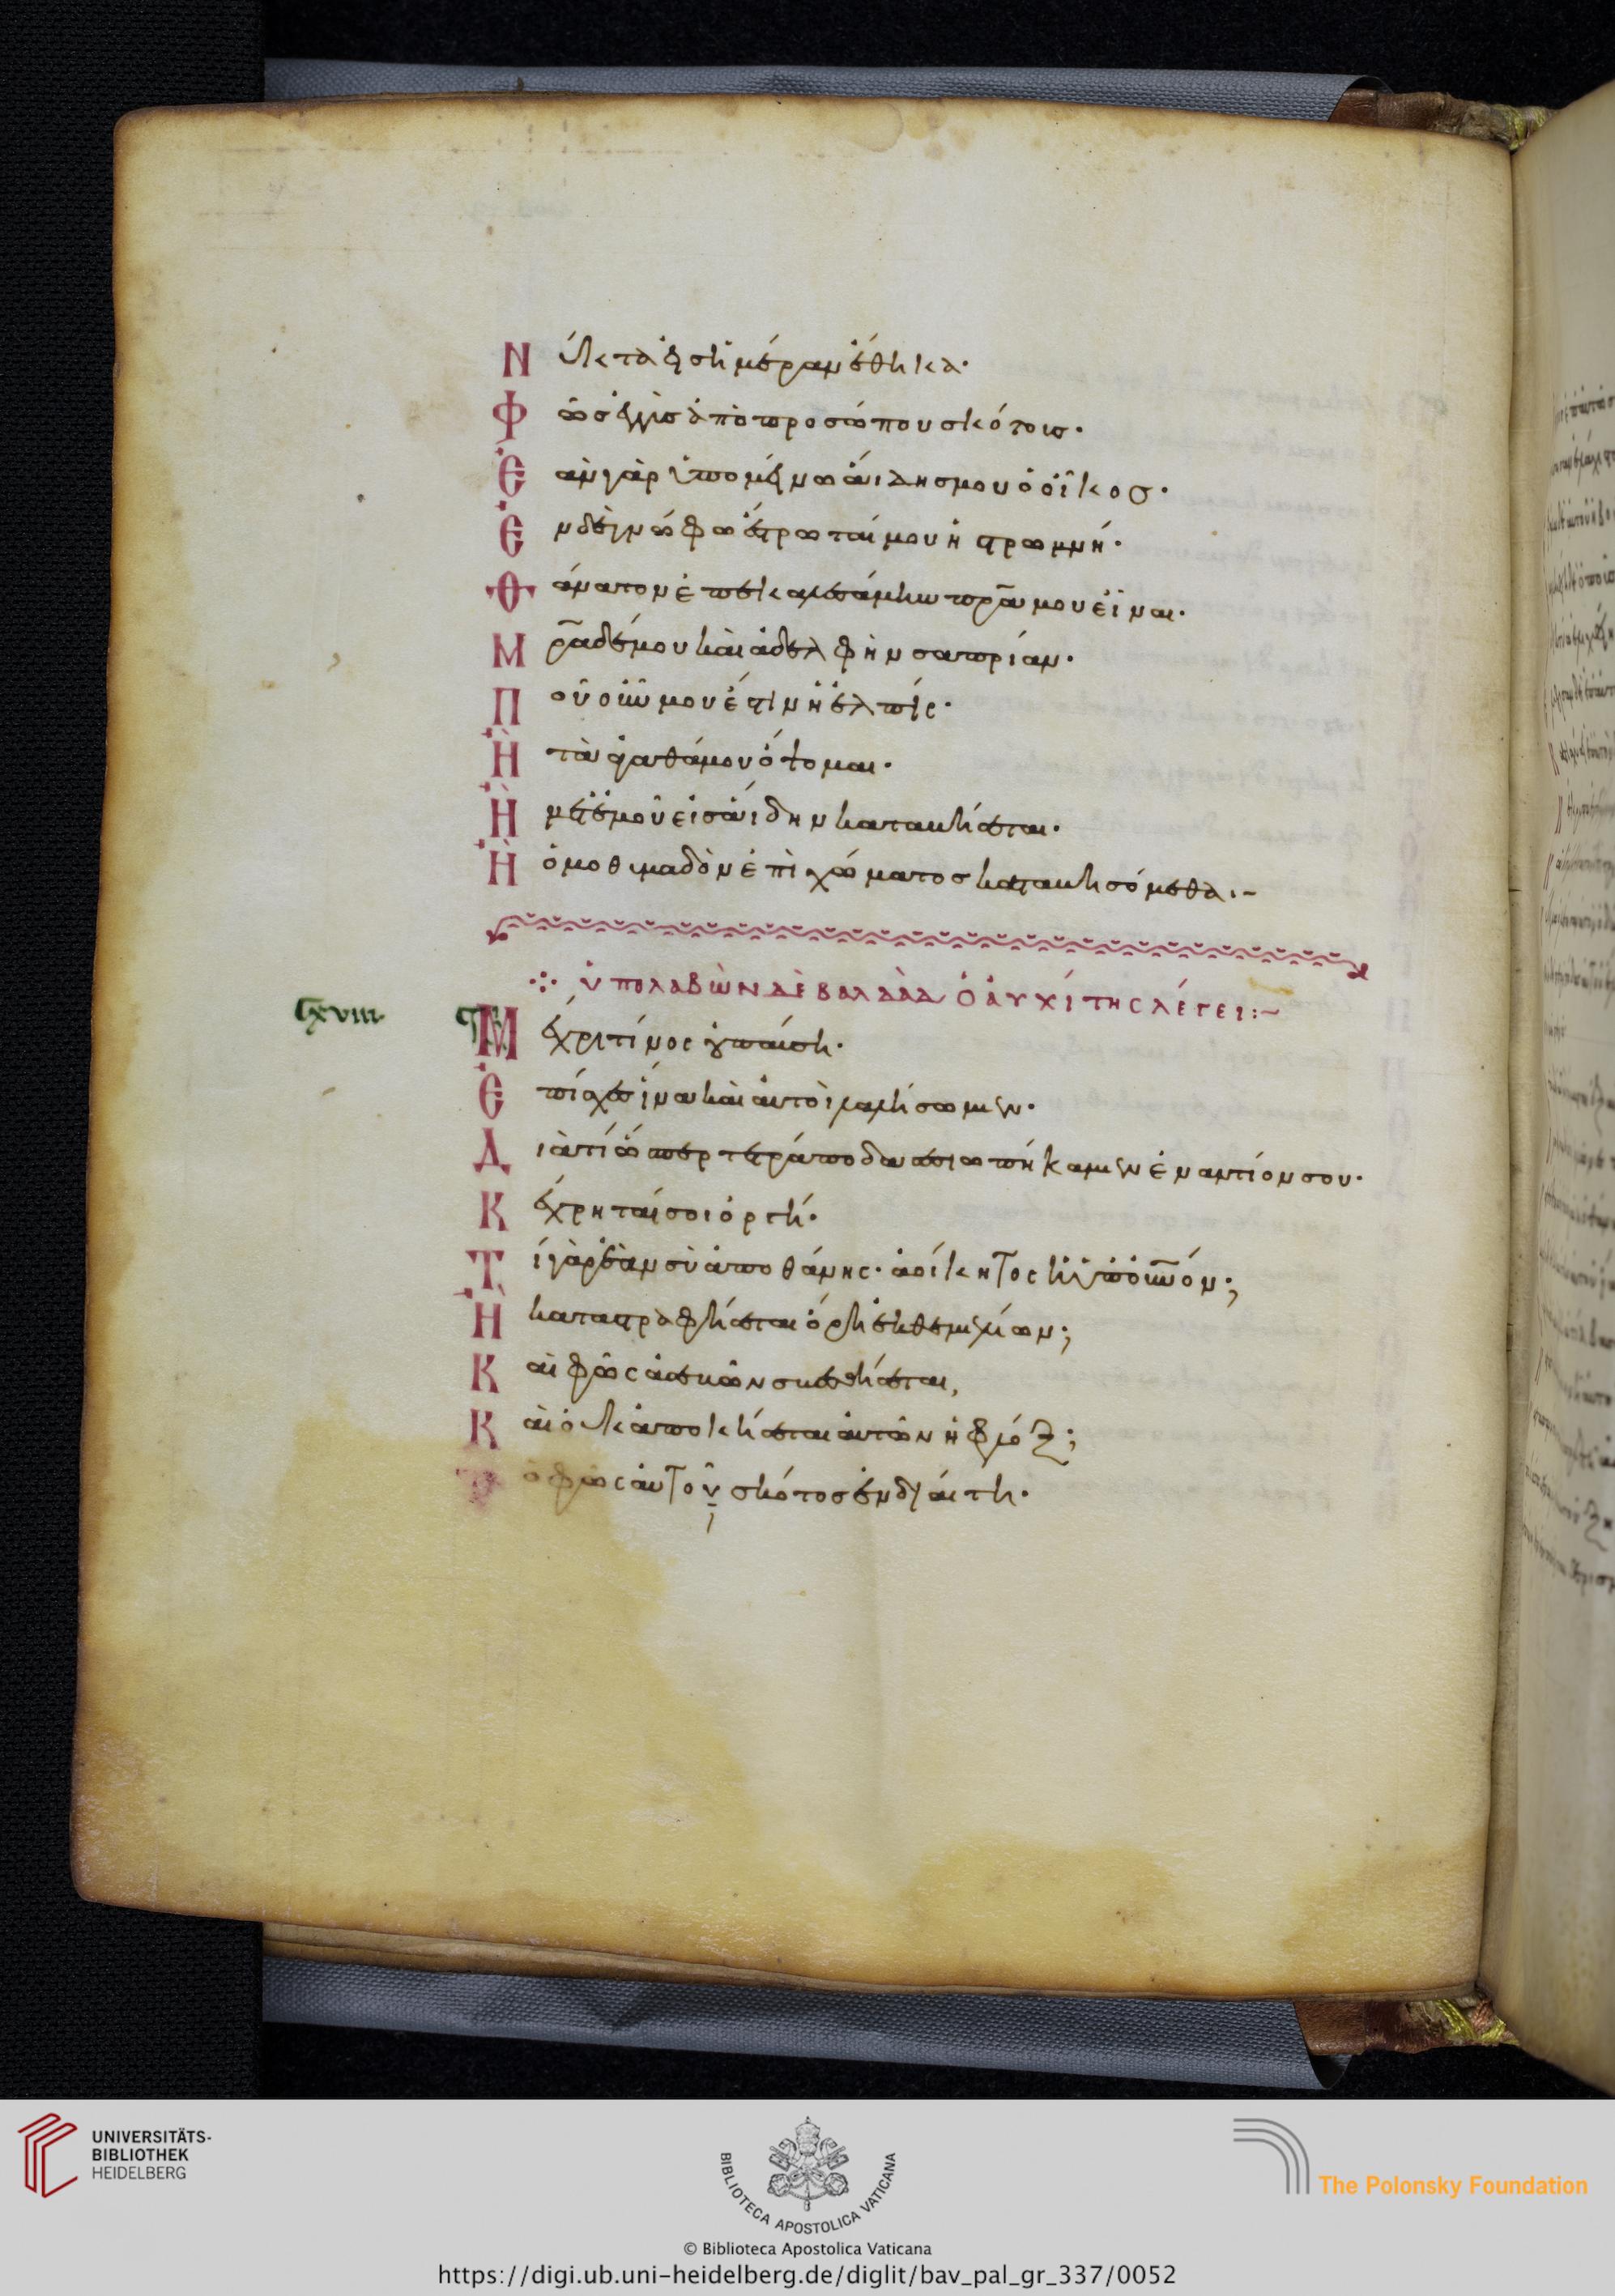 Νύκτα εἰς ἡμέραν ἔθηκα·
Φῶς ἐγγὺς ἀπὸ προσώπου σκότους·
Ἐὰν γὰρ ὑπομείνω ἅιδης μου ὁ οἶκος·
Ἐν δὲ γνόφω ἔστρωταί μου ἡ στρωμνή·
Θάνατον ἐπεκαλεσάμην πρα μου εἶναι·
Μρα δέ μου καὶ ἀδελφὴν σαπρίαν·
Ποῦ οὖν μου ἔστιν ἡ ἐλπίς·
Ἢ τὰ ἀγαθά μου ὄψομαι·
Ἢ μετ' ἐμοῦ εἰς ἅιδην καταβήσεται·
Ἢ ὁμοθυμαδὸν ἐπὶ χώματος καταβησόμεθα:~
ὑπολαβὼν δὲ βαλδὰδ ὁ ἀυχίτης λέγει:~
Cxviii
Μέχρι τίνος οὐ παύση·
Ἐπίσχες ἵνα καὶ αὐτοὶ λαλήσωμεν·
Διὰ τί ὥσπερ τετράποδα σεσιωπήκαμεν ἐναντίον σου·
Κέχρηταί σοι ὀργή·
Τί γὰρ ἐὰν σὺ ἀποθάνης· ἀοίκητος ἡ ὑπ' οὐνόν;
Ἢ καταστραφήσεται ὄρη ἐκ θεμελίων;
Καὶ φῶς ἀσεβῶν σβεσθήσεται,
Καὶ οὐκ ἀποβήσεται αὐτῶν ἡ φλόξ;
Τὸ φῶς αὐτοῦ σκότος ἐν διαίτη·
UNIVERSITÄTS-
BIBLIOTHEK
HEIDELBERG
BIBLIOTECA APOSTOLICA VATICANA
The Polonsky Foundation
© Biblioteca Apostolica Vaticana
https://digi.ub.uni-heidelberg.de/diglit/bav_pal_gr_337/0052